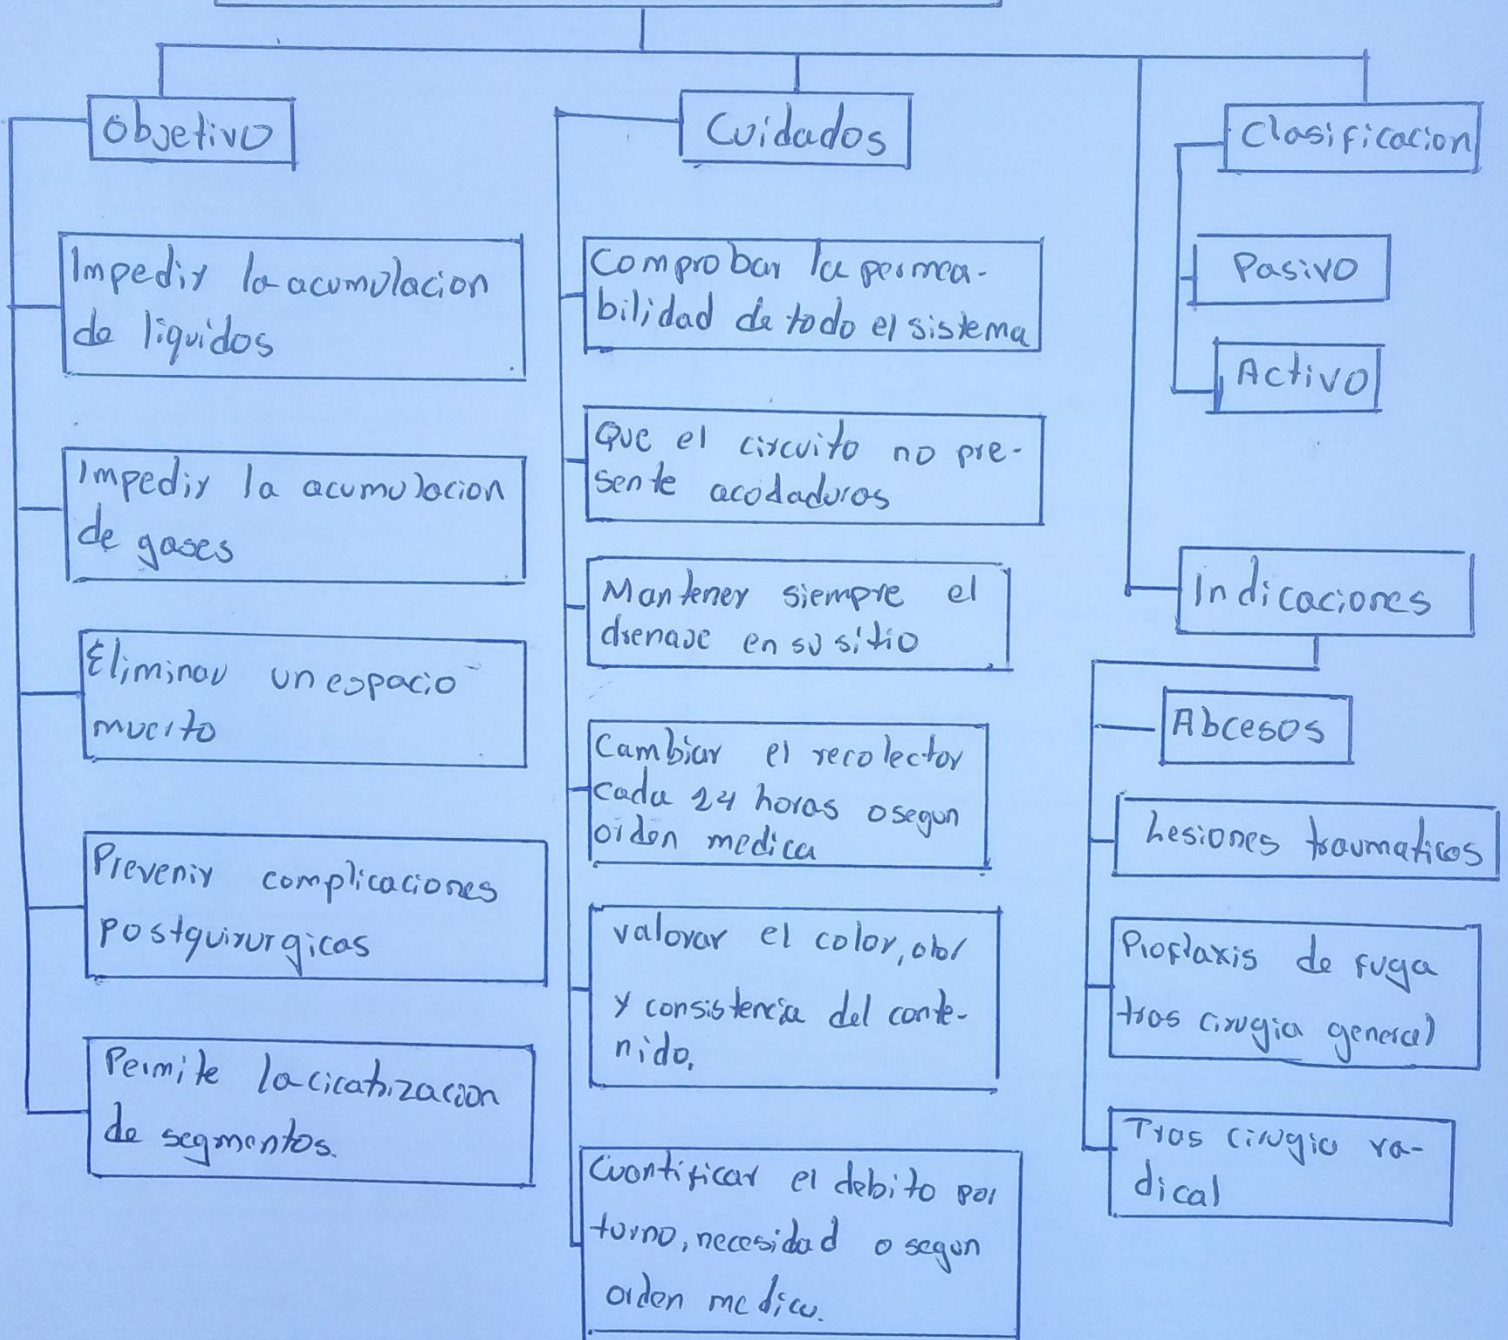 Objetivo
Impedir la acumulacion
de liquidos
Impedir la acumulacion
de gases
Eliminar un espacio
muerto
Prevenir complicaciones
postquirurgicas
Permite la cicatrizacion
de segmentos.
Cuidados
Comprobar la permea-
bilidad de todo el sistema
Que el circuito no pre-
sente acodaduras
Mantener siempre el
drenaje en su sitio
Cambiar el recolector
cada 24 horas o segun
orden medica
valorar el color, olor
y consistencia del conte-
nido.
Cuantificar el debito por
turno, necesidad o segun
orden medica.
Clasificacion
Pasivo
Activo
Indicaciones
Abcesos
Lesiones traumaticas
Proflaxis de fuga
tras cirugia general
Tras cirugia ra-
dical